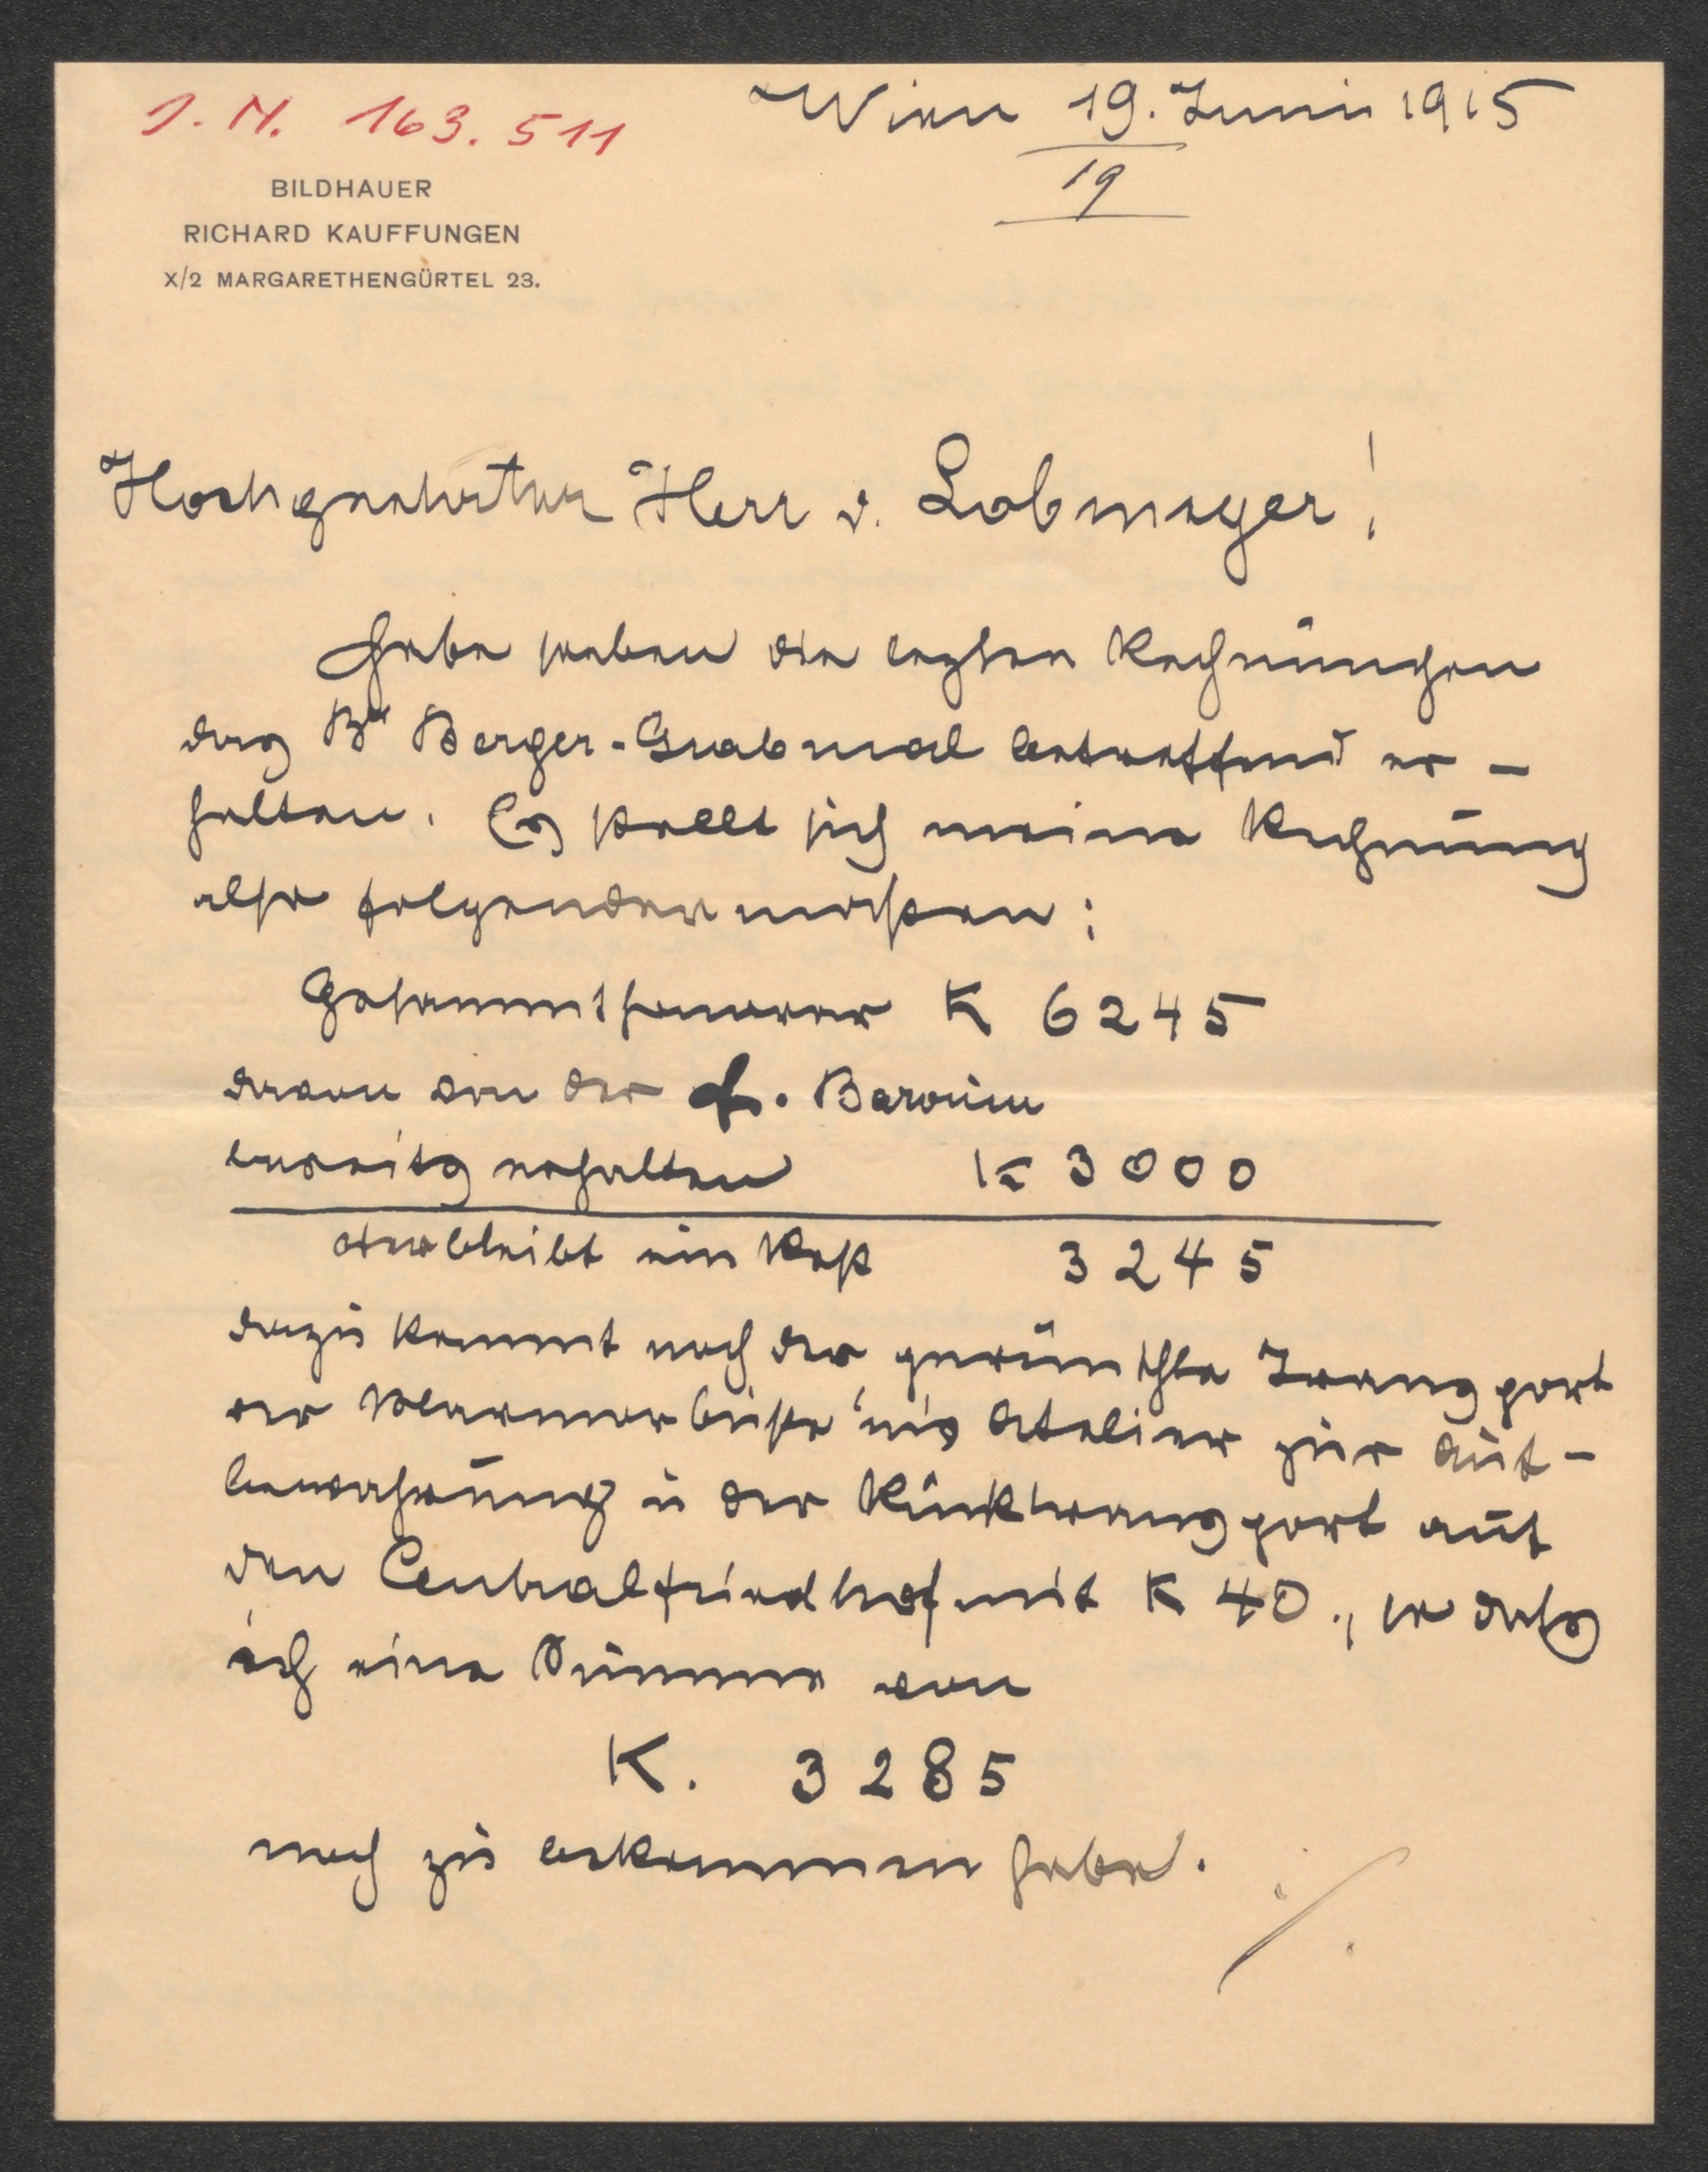 J. N. 163.511
Wien 19. Juni 1915
19
BILDHAUER
RICHARD KAUFFUNGEN
X/2 MARGARETHENGÜRTEL 23.
Hochgeehrter Herr v. Lobmeyer!
Habe soeben die lezten Rechnungen
das Br Berger-Grabmal betreffend er-
halten. Es stellt sich meine Rechnung
also folgendermaßen:
Gesammthonorar K 6245
davon von der Fr. Baronin
bereits erhalten K 3000
verbleibt ein Rest 3245
dazu kommt noch der gewünschte Transport
der Marmorbüste ins Atelier zur Auf-
bewahrung u der Rücktransport auf
den Centralfriedhof mit K 40., so daß
ich eine Summe von
K. 3285
noch zu bekommen habe.
./.